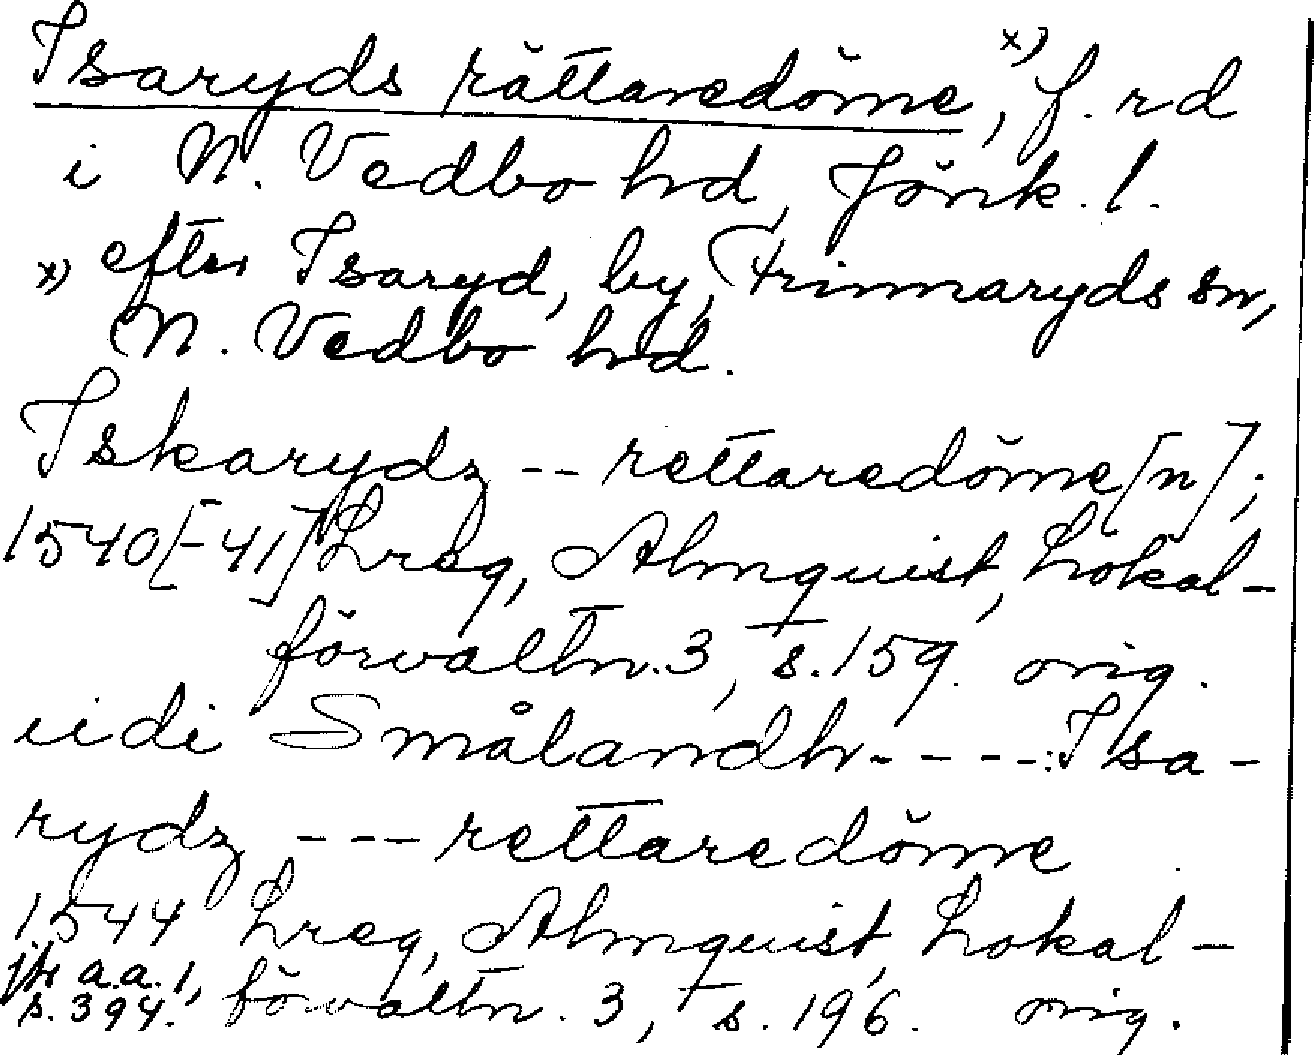 Isaryds rättaredöme, x) f. rd
i N. Vedbo hd, Jönk. l.
x) efter Isaryd, by, Frinnaryds sn,
N. Vedbo hd.
Iskarydz -- rettaredöme[n];
1540[-41] Lreg, Almquist, Lokal-
förvaltn. 3, s. 159. orig.
udi Smålandh - - - - : Isa-
rydz --- rettaredöme
1544 Lreg, Almquist, Lokal-
jfr a.a. 1, förvaltn. 3, s. 196. orig.
s. 394.